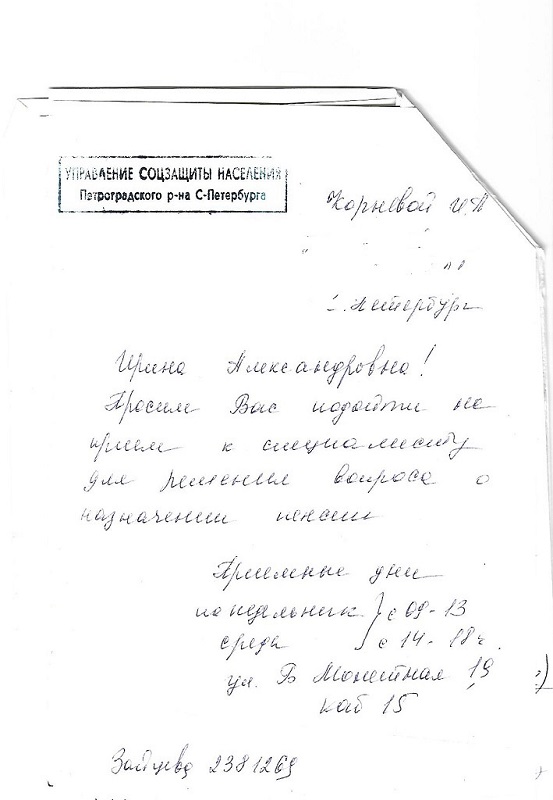 УПРАВЛЕНИЕ СОЦЗАЩИТЫ НАСЕЛЕНИЯ
Петроградского р-на С-Петербурга
Корневой И.А
С.Петербург
Ирина Александровна!
Просим Вас подойти на
прием к специалисту
для решения вопроса о
назначении пенсии
Приемные дни
понедельник } с 09-13
среда } с 14-18 ч.
ул. Б Монетная 19
каб 15
Зайцева 2381269